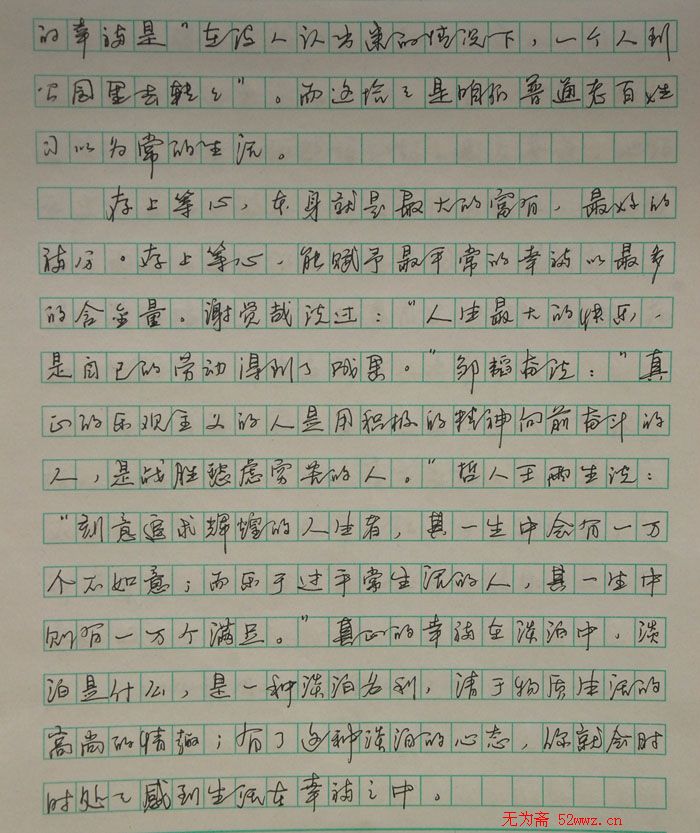 的幸福是“在没人认出来的情况下，一个人到
公园里去转转”。而这恰恰是咱们普通老百姓
习以为常的生活。
存上等心，本身就是最大的富有，最好的
福分。存上等心，能赋予最平常的幸福以最多
的含金量。谢觉哉说过：“人生最大的快乐，
是自己的劳动得到了成果。”邹韬奋说：“真
正的乐观主义的人是用积极的精神向前奋斗的
人，是战胜愁虑穷苦的人。”哲人王雨生说：
“刻意追求辉煌的人生者，其一生中会有一万
个不如意；而乐于过平常生活的人，其一生中
则有一万个满足。”真正的幸福在淡泊中，淡
泊是什么，是一种淡泊名利，清于物质生活的
高尚的情趣；有了这种淡泊的心态，你就会时
时处处感到生活在幸福之中。
无为斋 52wwz.cn